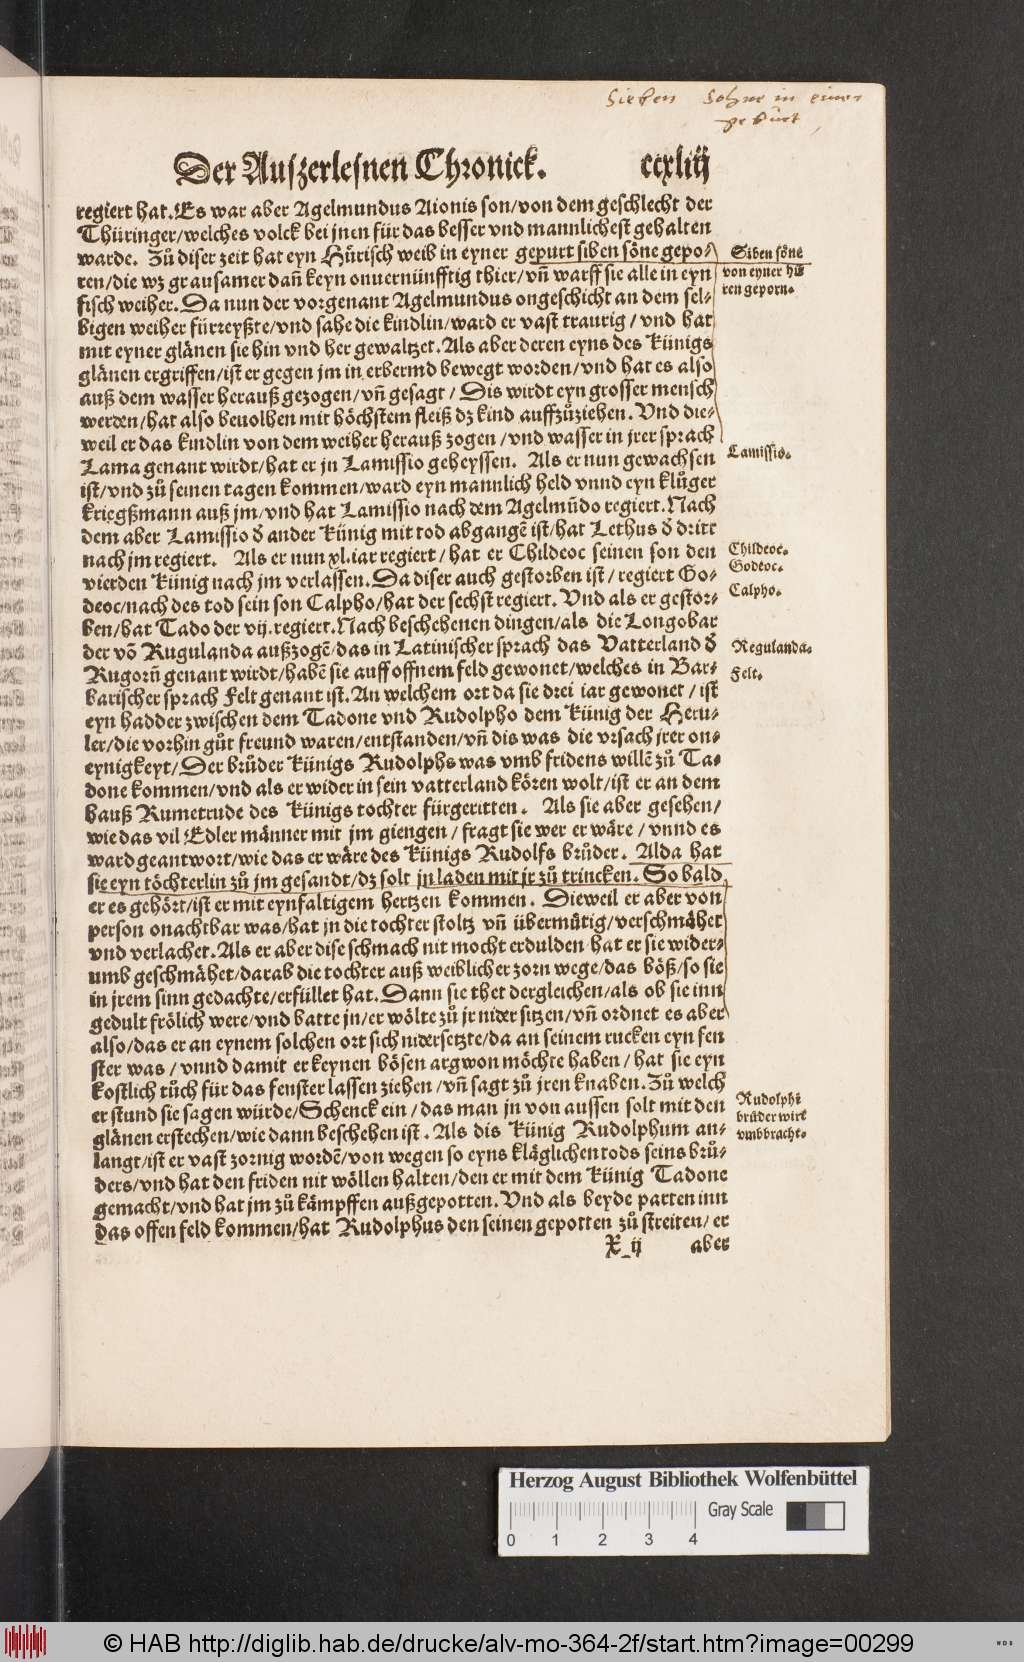 Sieben Sohne in einer
geburt
Der Auszerlesnen Chronick. ccxliij
regiert hat. Es war aber Agelmundus Aionis son/von dem geschlecht der
Thüringer/welches volck bei jnen für das besser vnd mannlichest gehalten
warde. Zů diser zeit hat eyn Hůrisch weib in eyner gepurt siben söne gepo-
ren/die wz grausamer dañ keyn onuernünfftig thier/vñ warff sie alle in eyn
fisch weiher. Da nun der vorgenant Agelmundus ongeschicht an dem sel-
bigen weiher fürreyßte/vnd sahe die kindlin/ward er vast traurig/vnd hat
mit eyner glänen sie hin vnd her gewaltzet. Als aber deren eyns des Künigs
glänen ergriffen/ist er gegen jm in erbermd bewegt worden/vnd hat es also
auß dem wasser herauß gezogen/vñ gesagt/Dis wirdt eyn grosser mensch
werden/hat also beuolhen mit höchstem fleiß dz kind auffzůziehen. Vnd die-
weil er das kindlin von dem weiher herauß zogen/vnd wasser in jrer sprach
Lama genant wirdt/hat er jn Lamissio geheyssen. Als er nun gewachsen
ist/vnd zů seinen tagen kommen/ward eyn mannlich held vnnd eyn klůger
kriegßmann auß jm/vnd hat Lamissio nach dem Agelmũdo regiert. Nach
dem aber Lamissio d̕ ander Künig mit tod abgangẽ ist/hat Lethus d̕ dritt
nach jm regiert. Als er nun xl.iar regiert/hat er Childeoc seinen son den
vierden Künig nach jm verlassen. Da diser auch gestorben ist/regiert Go-
deoc/nach des tod sein son Calpho/hat der sechst regiert. Vnd als er gestor-
ben/hat Tado der vij.regiert. Nach beschehenen dingen/als die Longobar
der võ Rugulanda außzogẽ/das in Latinischer sprach das Vatterland d̕
Rugorũ genant wirdt/habẽ sie auff offnem feld gewonet/welches in Bar-
barischer sprach Felt genant ist. An welchem ort da sie drei iar gewonet/ist
eyn hadder zwischen dem Tadone vnd Rudolpho dem Künig der Heru-
ler/die vorhin gůt freund waren/entstanden/vñ dis was die vrsach jrer on-
eynigkeyt/Der brůder Künigs Rudolphs was vmb fridens willẽ zů Ta-
done kommen/vnd als er wider in sein vatterland kören wolt/ist er an dem
hauß Rumetrude des Künigs tochter fürgeritten. Als sie aber gesehen/
wie das vil Edler männer mit jm giengen/fragt sie wer er wäre/vnnd es
ward geantwort/wie das er wäre des Künigs Rudolfs brůder. Alda hat
sie eyn töchterlin zů jm gesandt/dz solt jn laden mit jr zů trincken. So bald
er es gehört/ist er mit eynfaltigem hertzen kommen. Dieweil er aber von
person onachtbar was/hat jn die tochter stoltz vñ übermůtig/verschmähet
vnd verlachet. Als er aber dise schmach nit mocht erdulden hat er sie wider-
umb geschmähet/darab die tochter auß weiblicher zorn wege/das böß/so sie
in jrem sinn gedachte/erfüllet hat. Dann sie thet dergleichen/als ob sie inn
gedult frölich were/vnd batte jn/er wölte zů jr nider sitzen/vñ ordnet es aber
also/das er an eynem solchen ort sich nidersetzte/da an seinem rucken eyn fen
ster was/vnnd damit er keynen bösen argwon möchte haben/hat sie eyn
kostlich tůch für das fenster lassen ziehen/vñ sagt zů jren knaben. Zů welch
er stund sie sagen würde/Schenck ein/das man jn von aussen solt mit den
glänen erstechen/wie dann beschehen ist. Als dis Künig Rudolphum an-
langt/ist er vast zornig wordẽ/von wegen so eyns kläglichen tods seins brů-
ders/vnd hat den friden nit wöllen halten/den er mit dem Künig Tadone
gemacht/vnd hat jm zů kämpffen außgepotten. Vnd als beyde parten inn
das offen feld kommen/hat Rudolphus den seinen gepotten zů streiten/er
X ij aber
Siben söne
von eyner hů
ren geporn.
Lamissio.
Childeoc.
Godeoc.
Calpho.
Regulanda.
Felt.
Rudolphi
brůder wirt
vmbbracht.
Herzog August Bibliothek Wolfenbüttel
Gray Scale
0 1 2 3 4
© HAB http://diglib.hab.de/drucke/alv-mo-364-2f/start.htm?image=00299